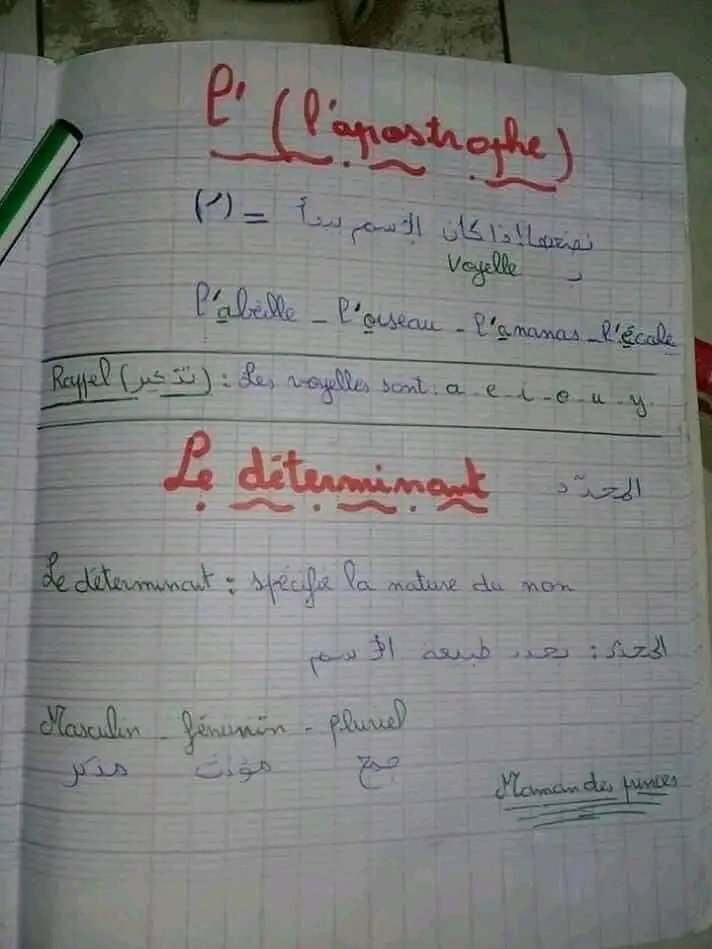 l' (l'apostrophe)
(') = نضعها إذا كان الإسم يبدأ
بـ Voyelle
l'abeille - l'oiseau - l'ananas - l'école
Rappel (تذكير) : Les voyelles sont : a - e - i - o - u - y.
Le déterminant المحدّد
Le déterminant : spécifie la nature du non
المحدد : يحدد طبيعة الإسم
Masculin - féminin - pluriel
مذكر مؤنث جمع
Maman des princes